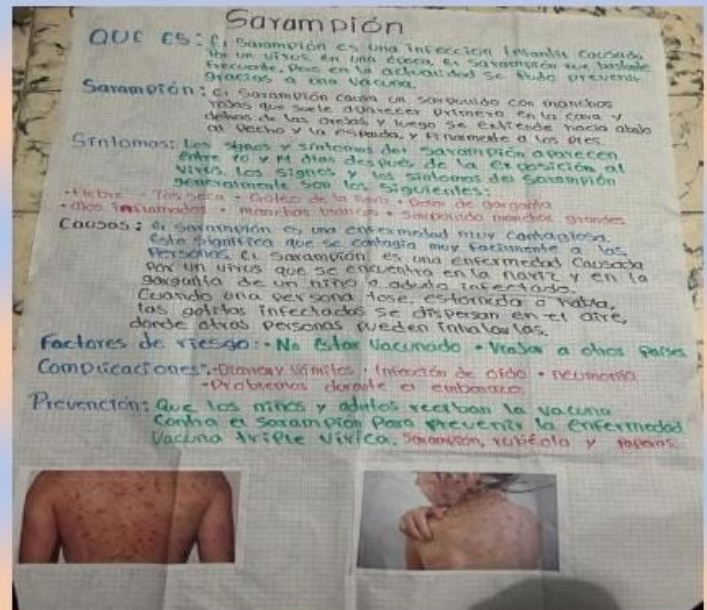 Sarampión
QUE ES: El Sarampión es una infección infantil causado
por un virus. en una época, el sarampión fue bastante
frecuente. Pero en la actualidad se Pudo prevenir
gracias a una vacuna.
Sarampión: el sarampión causa un sarpullido con manchas
rojas que suele aparecer primero en la cara y
detras de las orejas y luego se extiende hacia abajo
al Pecho y la espalda, y Finalmente a los pies.
Síntomas: Los signos y síntomas del Sarampión aparecen
entre 10 y 14 días después de la exposición al
virus. Los signos y los síntomas del Sarampión
generalmente son los siguientes:
•Fiebre • Tos seca • Goteo de la nariz • Dolor de garganta
• Ojos inflamados • manchas blancas • Sarpullido manchas grandes
Causas: el Sarampión es una enfermedad muy contagiosa.
Esto significa que se contagia muy facilmente a las
Personas. El Sarampión es una enfermedad Causada
por un virus que se encuentra en la nariz y en la
garganta de un niño o adulto infectado.
Cuando una persona tose, estornuda o habla,
las gotitas infectadas se dispersan en el aire,
donde otras personas pueden inhalarlas.
Factores de riesgo: •No Estar Vacunado • Viajar a otros Países
Complicaciones: •Diarrea y Vómitos • Infección de oído • neumonía
•Problemas durante el embarazo.
Prevención: Que los niños y adultos reciban la vacuna
Contra el sarampión Para prevenir la enfermedad
Vacuna triple vírica. Sarampión, rubéola y paperas.